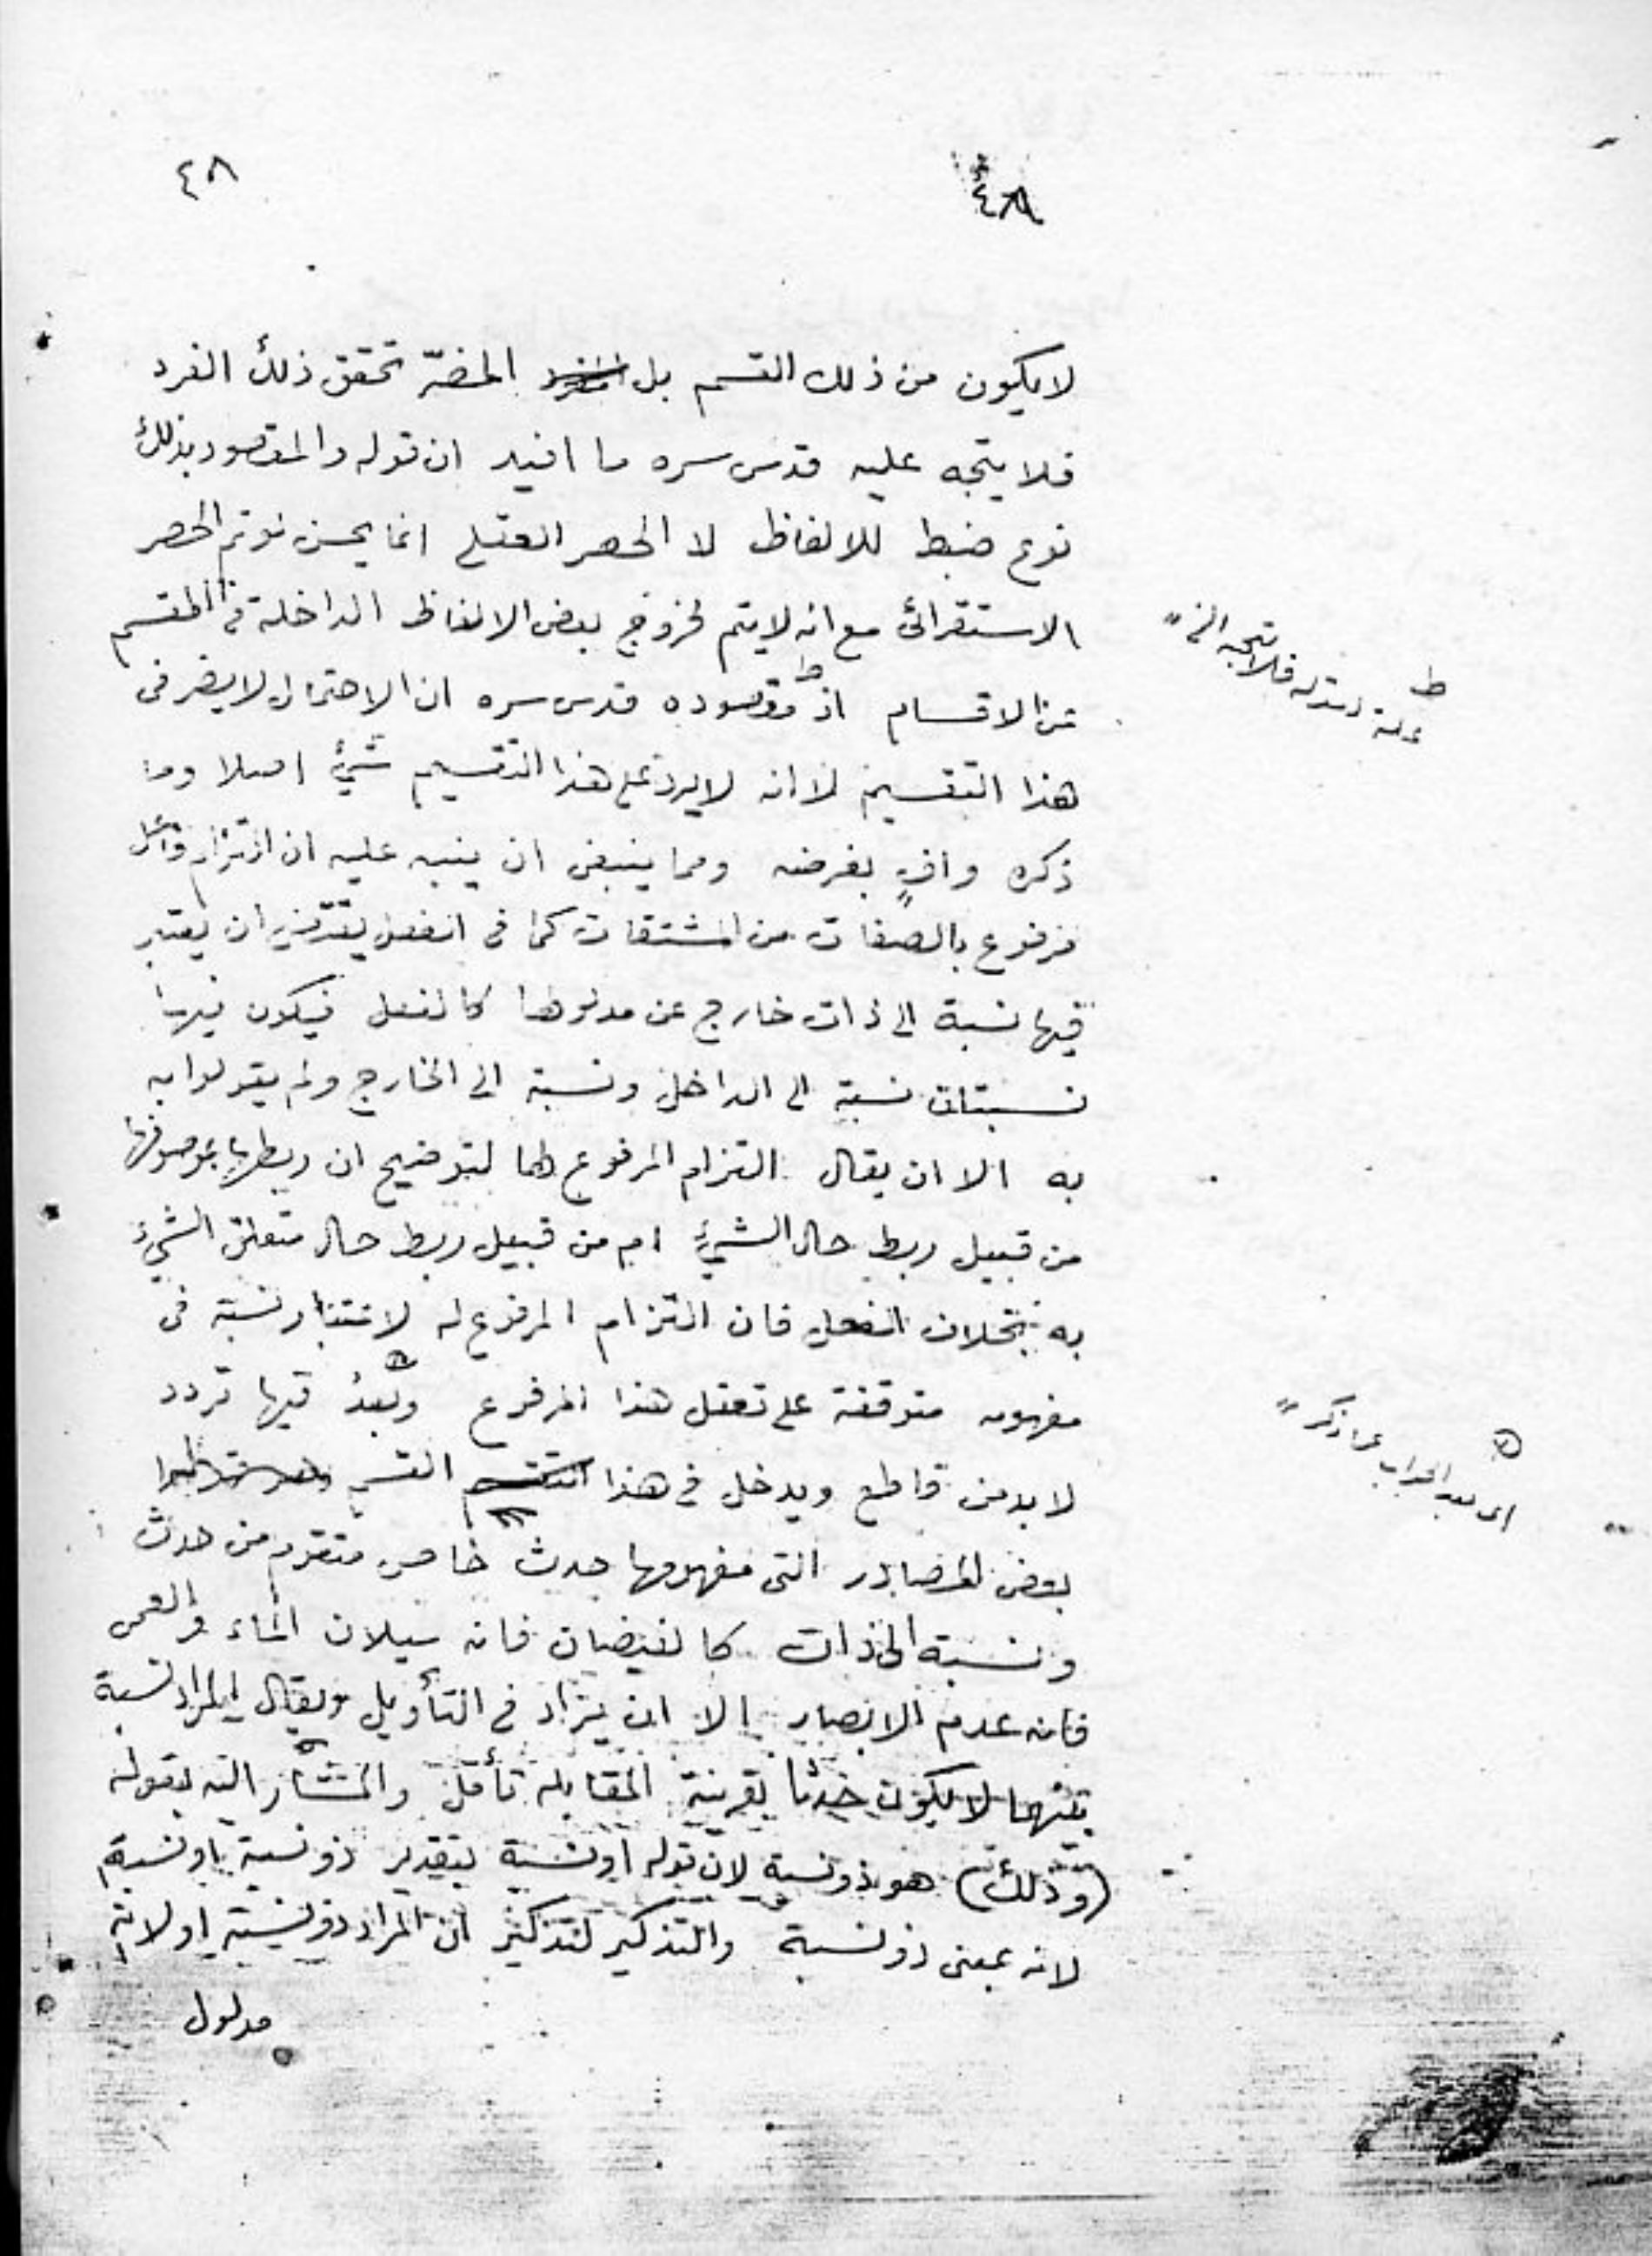 ٤٨
٤٨
لا يكون من ذلك القسم بل المضرّ تحقق ذلك الفرد
فلا يتجه عليه قدس سره ما افيد ان قوله والمقصود بذلك
نوع ضبط للالفاظ لا الحصر العقلي انما يحسن لو تم الحصر
الاستقرائى مع انه لا يتم لخروج بعض الالفاظ الداخلة فى المقسم
عن الاقسام اذ مقصوده قدس سره ان الاحتمال لا يضر فى
هذا التقسيم لا انه لا يرد على هذا التقسيم شئ اصلا وما
ذكره وافٍ بغرضه ومما ينبغى ان ينبه عليه ان التزام فاعل
مرفوع بالصفات من المشتقات كما فى الفعل يقتضى ان يعتبر
فيها نسبة الى ذات خارج عن مدلولها كالفعل فيكون فيها
نسبتان نسبة الى الداخل ونسبة الى الخارج ولم يقولوا به
به الا ان يقال التزام المرفوع لها لتوضيح ان ربطها بموصوفها
من قبيل ربط حال الشئ ام من قبيل ربط حال متعلق الشئ
به بخلاف الفعل فان التزام المرفوع له لاعتبار نسبة فى
مفهومه متوقفة على تعقل هذا المرفوع وبعدُ فيها تردد
لا بد من قاطع ويدخل فى هذا القسم
بعض المصادر التى مفهومها حدث خاص متقوم من حدث
ونسبة الى ذات كالفيضان فانه سيلان الماء والعمى
فانه عدم الابصار الا ان يزاد فى التأويل ويقال المراد نسبة
بينهما لا يكون حدثا بقرينة المقابلة تأمل والمشار اليه بقوله
(وذلك) هو ذو نسبة لان قوله او نسبة بتقدير ذو نسبة او نسبة
لانه بمعنى ذو نسبة والتذكير لتذكير ان المراد ذو نسبة او لانه
مدلول
ط
علة لقوله فلا يتجه الخ
اى بعد الجواب بما ذكر